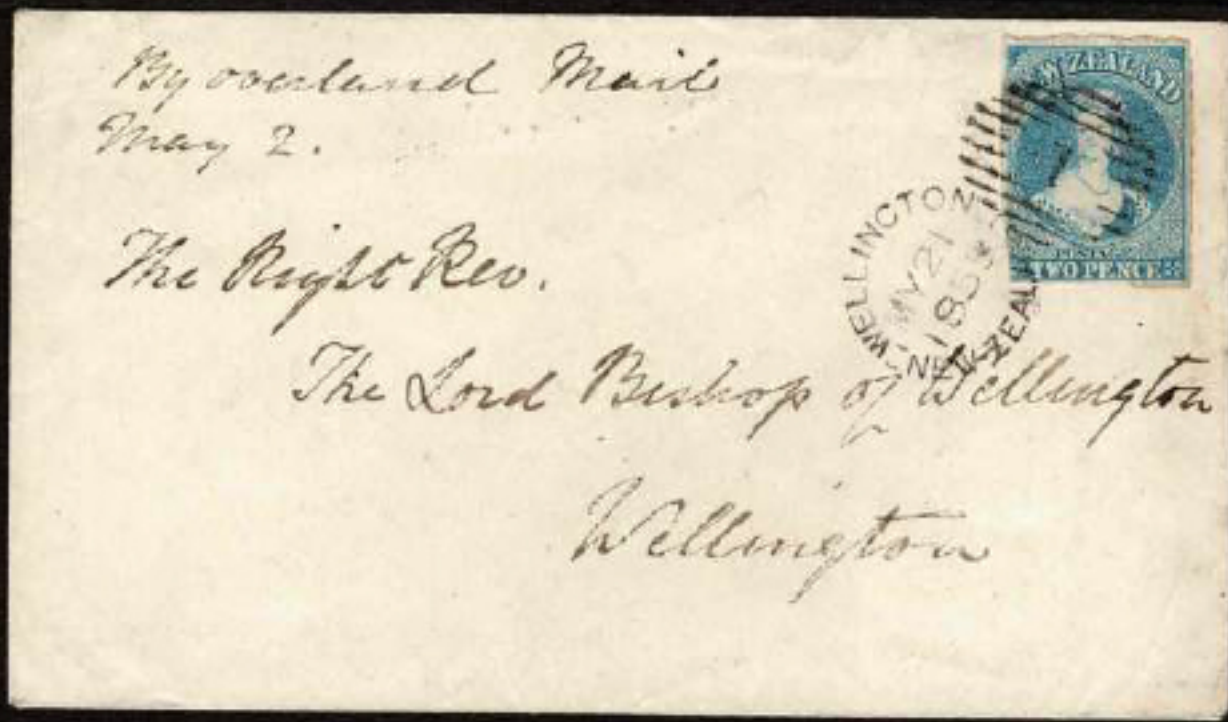 By overland Mail
May 2.
NEW ZEALAND
POSTAGE
TWO PENCE
WELLINGTON
MY 21
185
NEW-ZEALAND
The Right Rev.
The Lord Bishop of Wellington
Wellington